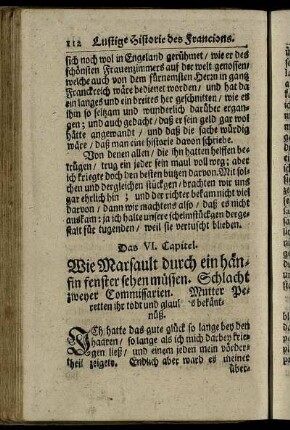 112 Lustige Historie des Francions.
sich noch wol in Engeland gerühmet / wie er des
schönsten Frauenzimmers auf der welt genossen /
welche auch von dem fürnemsten Herrn in gantz
Franckreich wäre bedienet worden / und hat da
ein langes und ein breites her geschnitten / wie es
ihm so seltzam und wunderlich darüber ergan-
gen; und auch gedacht / daß er sein geld gar wol
hätte angewandt / und daß die sache würdig
wäre / daß man eine historie davon schriebe.
Von denen allen / die ihn hatten helffen be-
trügen / trug ein jeder sein maul voll weg; aber
ich kriegte doch den besten butzen darvon. Mit sol-
chen und dergleichen stückgen / brachten wir uns
gar ehrlich hin; und der richter bekam nicht viel
darvon / dann wir machtens also / daß es nicht
auskam: ja ich halte unsere schelmstückgen derge-
stalt für tugenden / weil sie vertuscht blieben.
Das VI. Capitel.
Wie Marsault durch ein hän-
fin fenster sehen müssen. Schlacht
zweyer Commissarien. Mutter Pe-
retten ihr todt und bekänt-
nüß.
ICh hatte das gute glück so lange bey den
haaren / so lange als ich mich darbey krie-
gen ließ / und einem jeden mein vörder-
theil zeigete. Endlich aber ward es meiner
über-